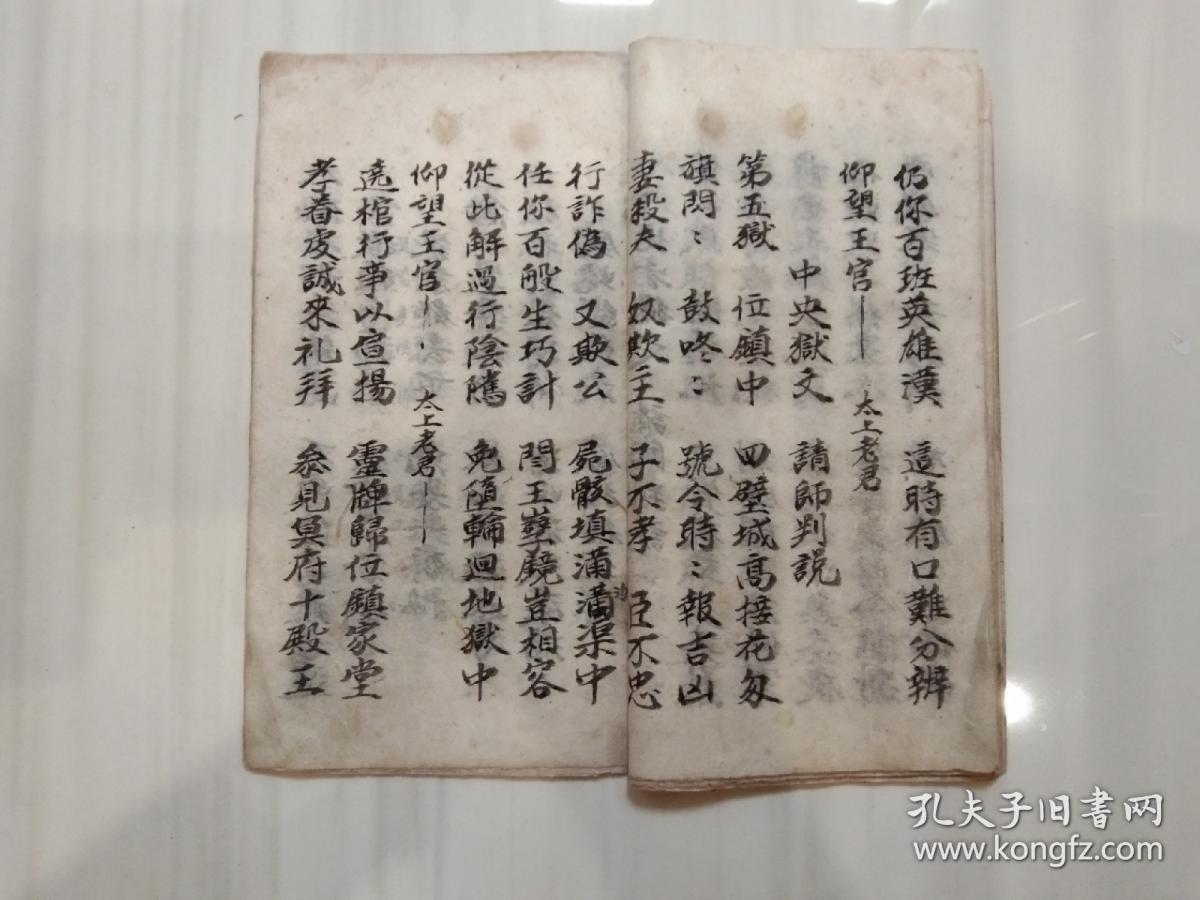 仍你百班英雄漢　這時有口難分辨
仰望王官——　太上老君
中央獄文　請師判説
第五獄　位鎮中　四壁城高接花匁
旗閃：鼓咚：　號令時：報吉凶
妻殺夫　奴欺主　子不孝　臣不忠
行詐偽　又欺公　屍骸填滿溝渠中
任你百般生巧計　閆王孽鏡豈相容
從此解過行陰隲　免墮輪迴地獄中
仰望王官——　太上老君——
遶棺行事以宣揚　靈牌歸位鎮家堂
孝眷虔誠來礼拜　叅見冥府十殿王
孔夫子旧书网
www.kongfz.com